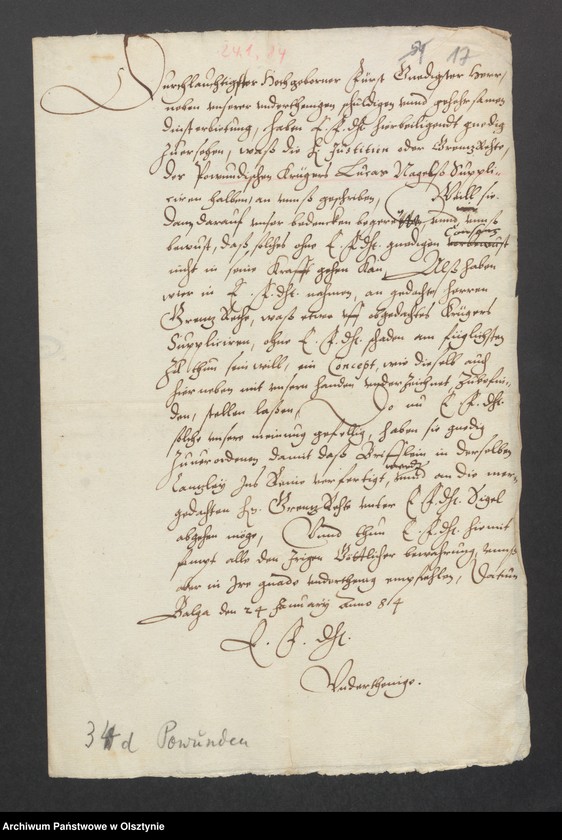 24.1.84
84 17
Durchlauchtigster Hochgeborner Fürst Gnedigster Herr,
neben unserer underthenigen schüldigen unnd gehorsamen
dinsterbietung, haben E. F. dht. hierbeiligendt gnedig
zuersehen, waß die H. Justitien oder GrenzRehte,
der Powundischen Krügers Lucas Nagelß Suppli-
cirens halben, an unnß geschrieben, Weill sie
dann darauf unser bedencken begeren unnd unnß
bewust, daß solches ohne E. F. dht. gnedigen Consens
nicht in seine Krafft gehen kan, Alß haben
wier in E. F. dht. nahmen, an gedachte herren
GrenzRehte, waß etwa uff obgedachtes Krügers
Suppliciren, ohne E. F. dht. schaden am füglichsten
zu thun sein will, ein Concept, wie dieselb auch
hierneben mit unsern handen underzeichnet, zubefin-
den, stellen laßen, Do nu E. F. dht.
solche unsere meinung gefellig, haben sie gnedig
zuverordenen damit daß Brifflein in derselben
Cantzley Ins Reine verfertigt, werde unnd an die mer-
gedachten Hn. GrenzRehte unter E. F. dht. Sigel
abgehen möge, Unnd thun E. F. dht. hiermit
sampt alle den Irigen Göttlicher bewahrung, unnß
aber in Ire gnade underthenig empfehlen, Datum
Balga den 24 January Anno 84
E. F. dht.
Underthenige.
34 d Powunden
Archiwum Państwowe w Olsztynie